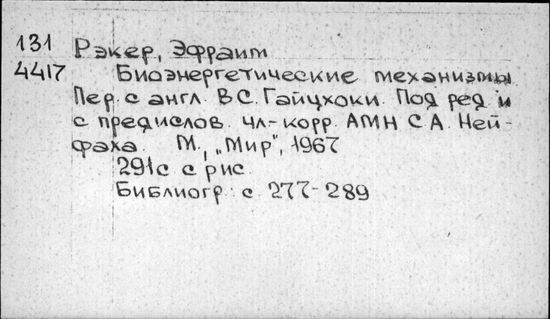 131 Рэкер, Эфраим
4417 Биоэнергетические механизмы
Пер. с англ. В С. Гайцхоки. Под ред и
с предислов. чл-корр. АМН С А. Ней-
фаха. М., „Мир", 1967
291с с рис
Библиогр: с 277-289